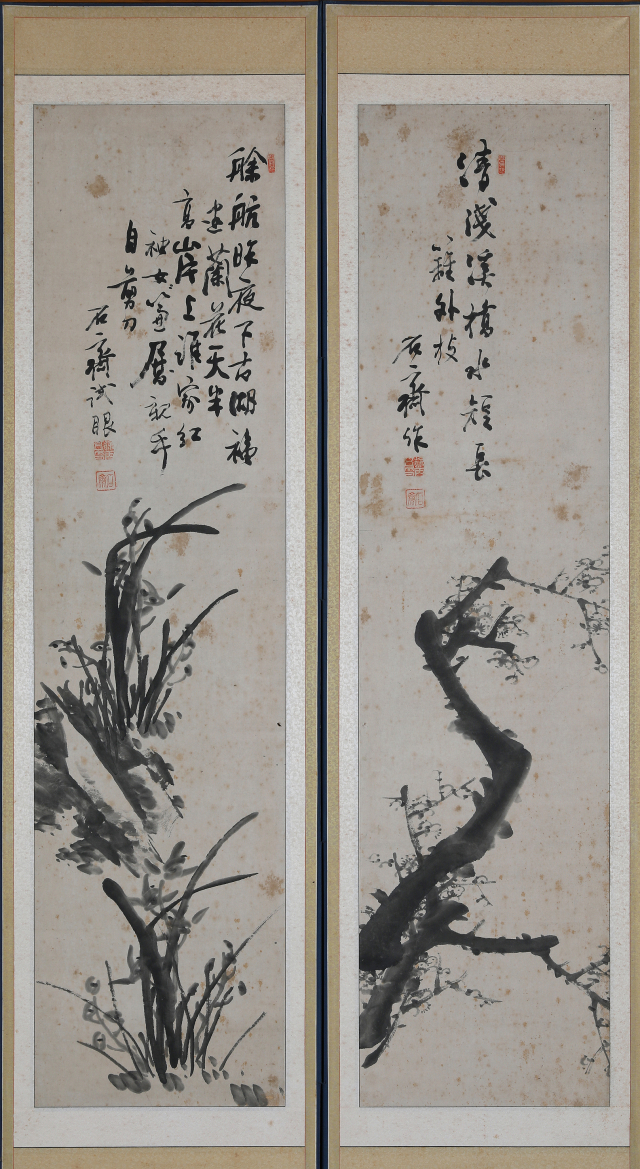 清淺溪橋水短長
籬外枝
石齋作
艅航昨夜下古湖福
建蘭花天半
高岸上誰家紅
袖女親手
自剪刀
石齋試眼